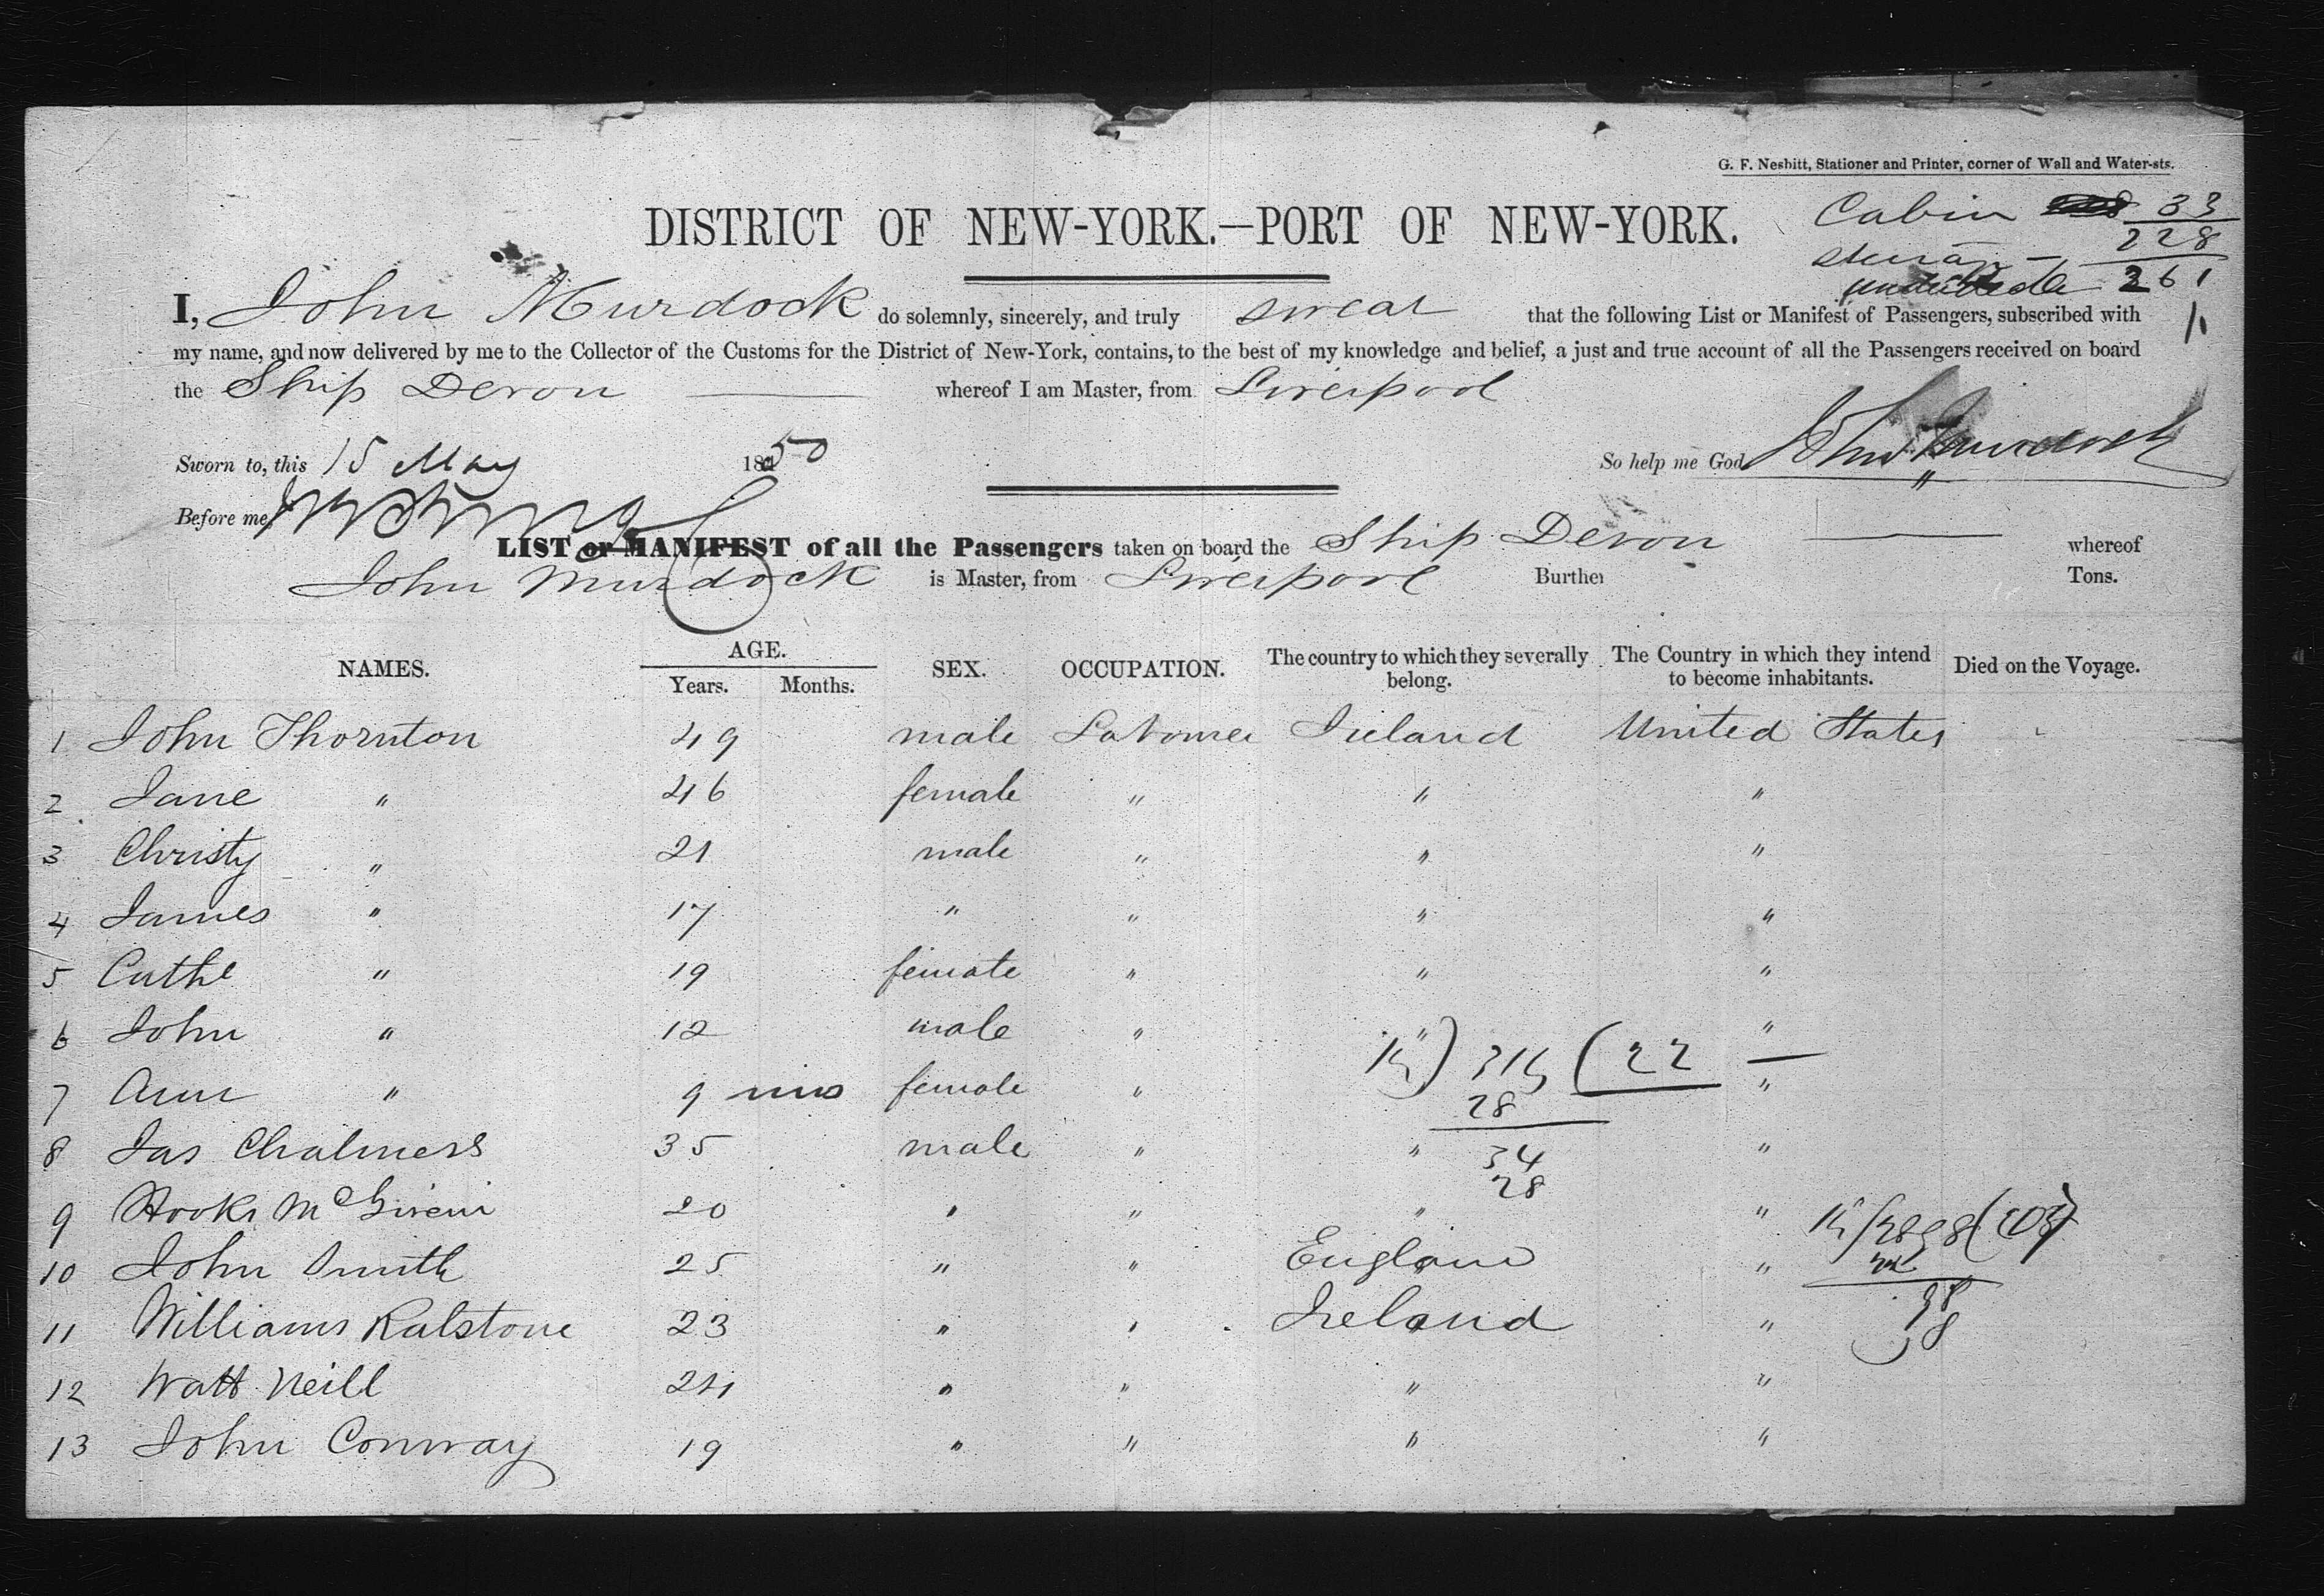 G. F. Nesbitt, Stationer and Printer, corner of Wall and Water-sts.
DISTRICT OF NEW-YORK.—PORT OF NEW-YORK.
Cabin 33
228
261
I, John Murdock do solemnly, sincerely, and truly swear that the following List or Manifest of Passengers, subscribed with
my name, and now delivered by me to the Collector of the Customs for the District of New-York, contains, to the best of my knowledge and belief, a just and true account of all the Passengers received on board
the Ship Devon whereof I am Master, from Liverpool
Sworn to, this 15 May 1850
So help me God. John Murdock
Before me,
LIST or MANIFEST of all the Passengers taken on board the Ship Devon whereof
John Murdock is Master, from Liverpool Burthen Tons.
NAMES. AGE. Years. Months. SEX. OCCUPATION. The country to which they severally belong. The Country in which they intend to become inhabitants. Died on the Voyage.
1 John Thornton 49 male Labourer Ireland United States
2 Jane " 46 female " " "
3 Christy " 21 male " " "
4 James " 17 " " " "
5 Cathe " 19 female " " "
6 John " 12 male " " "
7 Ann " 9 mos female " " "
8 Jas Chalmers 35 male " " "
9 20 " " " "
10 John Smith 25 " " England "
11 Williams Ralstone 23 " " Ireland "
12 Watt Neill 24 " " " "
13 John Conway 19 " " " "
22
28
34
28